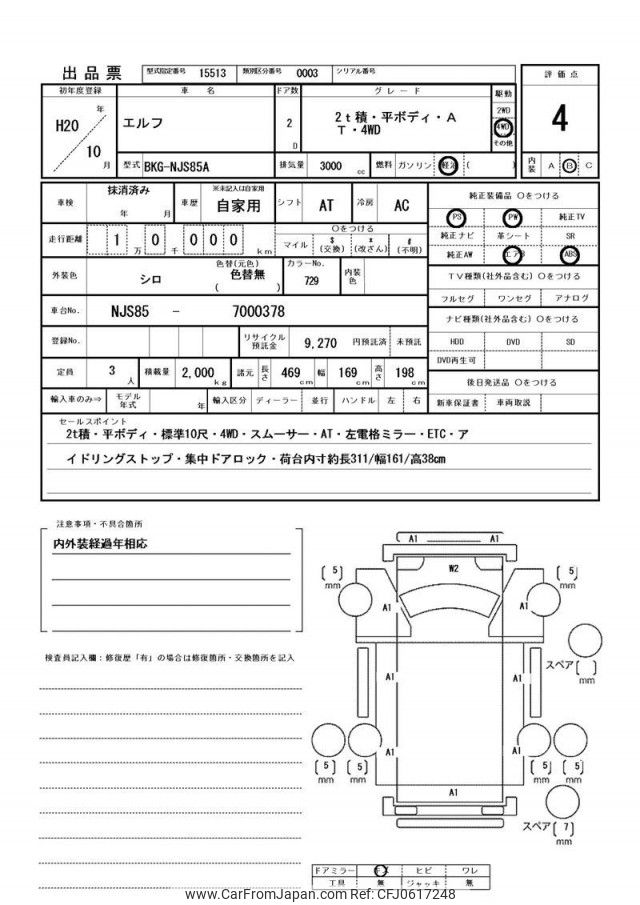 出品票 型式指定番号 15513 類別区分番号 0003 シリアル番号
評価点
4
内装 A B C
初年度登録 車名 ドア数 グレード 駆動
H20 年 10 月
エルフ
2 D
2t積・平ボディ・A
T・4WD
2WD
4WD
その他
型式 BKG-NJS85A 排気量 3000 cc 燃料 ガソリン 軽油 ( )
車検 抹消済み 年 月 車歴 ※未記入は自家用 自家用 シフト AT 冷房 AC
走行距離 1 万 0 千 0 0 0 km
○をつける
マイル $ (交換) * (改ざん) # (不明)
外装色 シロ 色替(元色) 色替無 ( ) カラーNo. 729 内装色
車台No. NJS85 - 7000378
登録No. リサイクル預託金 9,270 円預託済 未預託
定員 3 人 積載量 2,000 kg 諸元 長さ 469 cm 幅 169 cm 高さ 198 cm
輸入車のみ⇒ モデル年式 年 輸入区分 ディーラー ・ 並行 ハンドル 左 右
純正装備品 ○をつける
PS PW 純正TV
純正ナビ 革シート SR
純正AW エアB ABS
TV種類(社外品含む) ○をつける
フルセグ ワンセグ アナログ
ナビ種類(社外品含む) ○をつける
HDD DVD SD
DVD再生可
後日発送品 ○をつける
新車保証書 車両取説
セールスポイント
2t積・平ボディ・標準10尺・4WD・スムーサー・AT・左電格ミラー・ETC・ア
イドリングストップ・集中ドアロック・荷台内寸約長311/幅161/高38cm
注意事項・不具合箇所
内外装経過年相応
検査員記入欄:修復歴「有」の場合は修復箇所・交換箇所を記入
A1 A1
W2
[5] mm [5] mm
A1 A1
スペア [ ] mm
A1 A1
A1 A1
[5] mm [5] mm [5] mm [5] mm
A1
スペア [7] mm
ドアミラー キズ ヒビ ワレ
工具 無 ジャッキ 無
www.CarFromJapan.com Ref: CFJ0617248